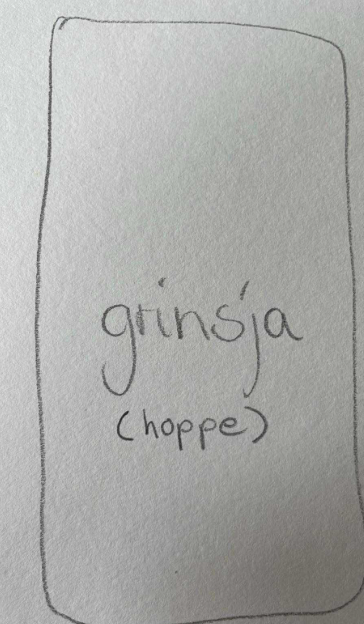 grinsja
(hoppe)